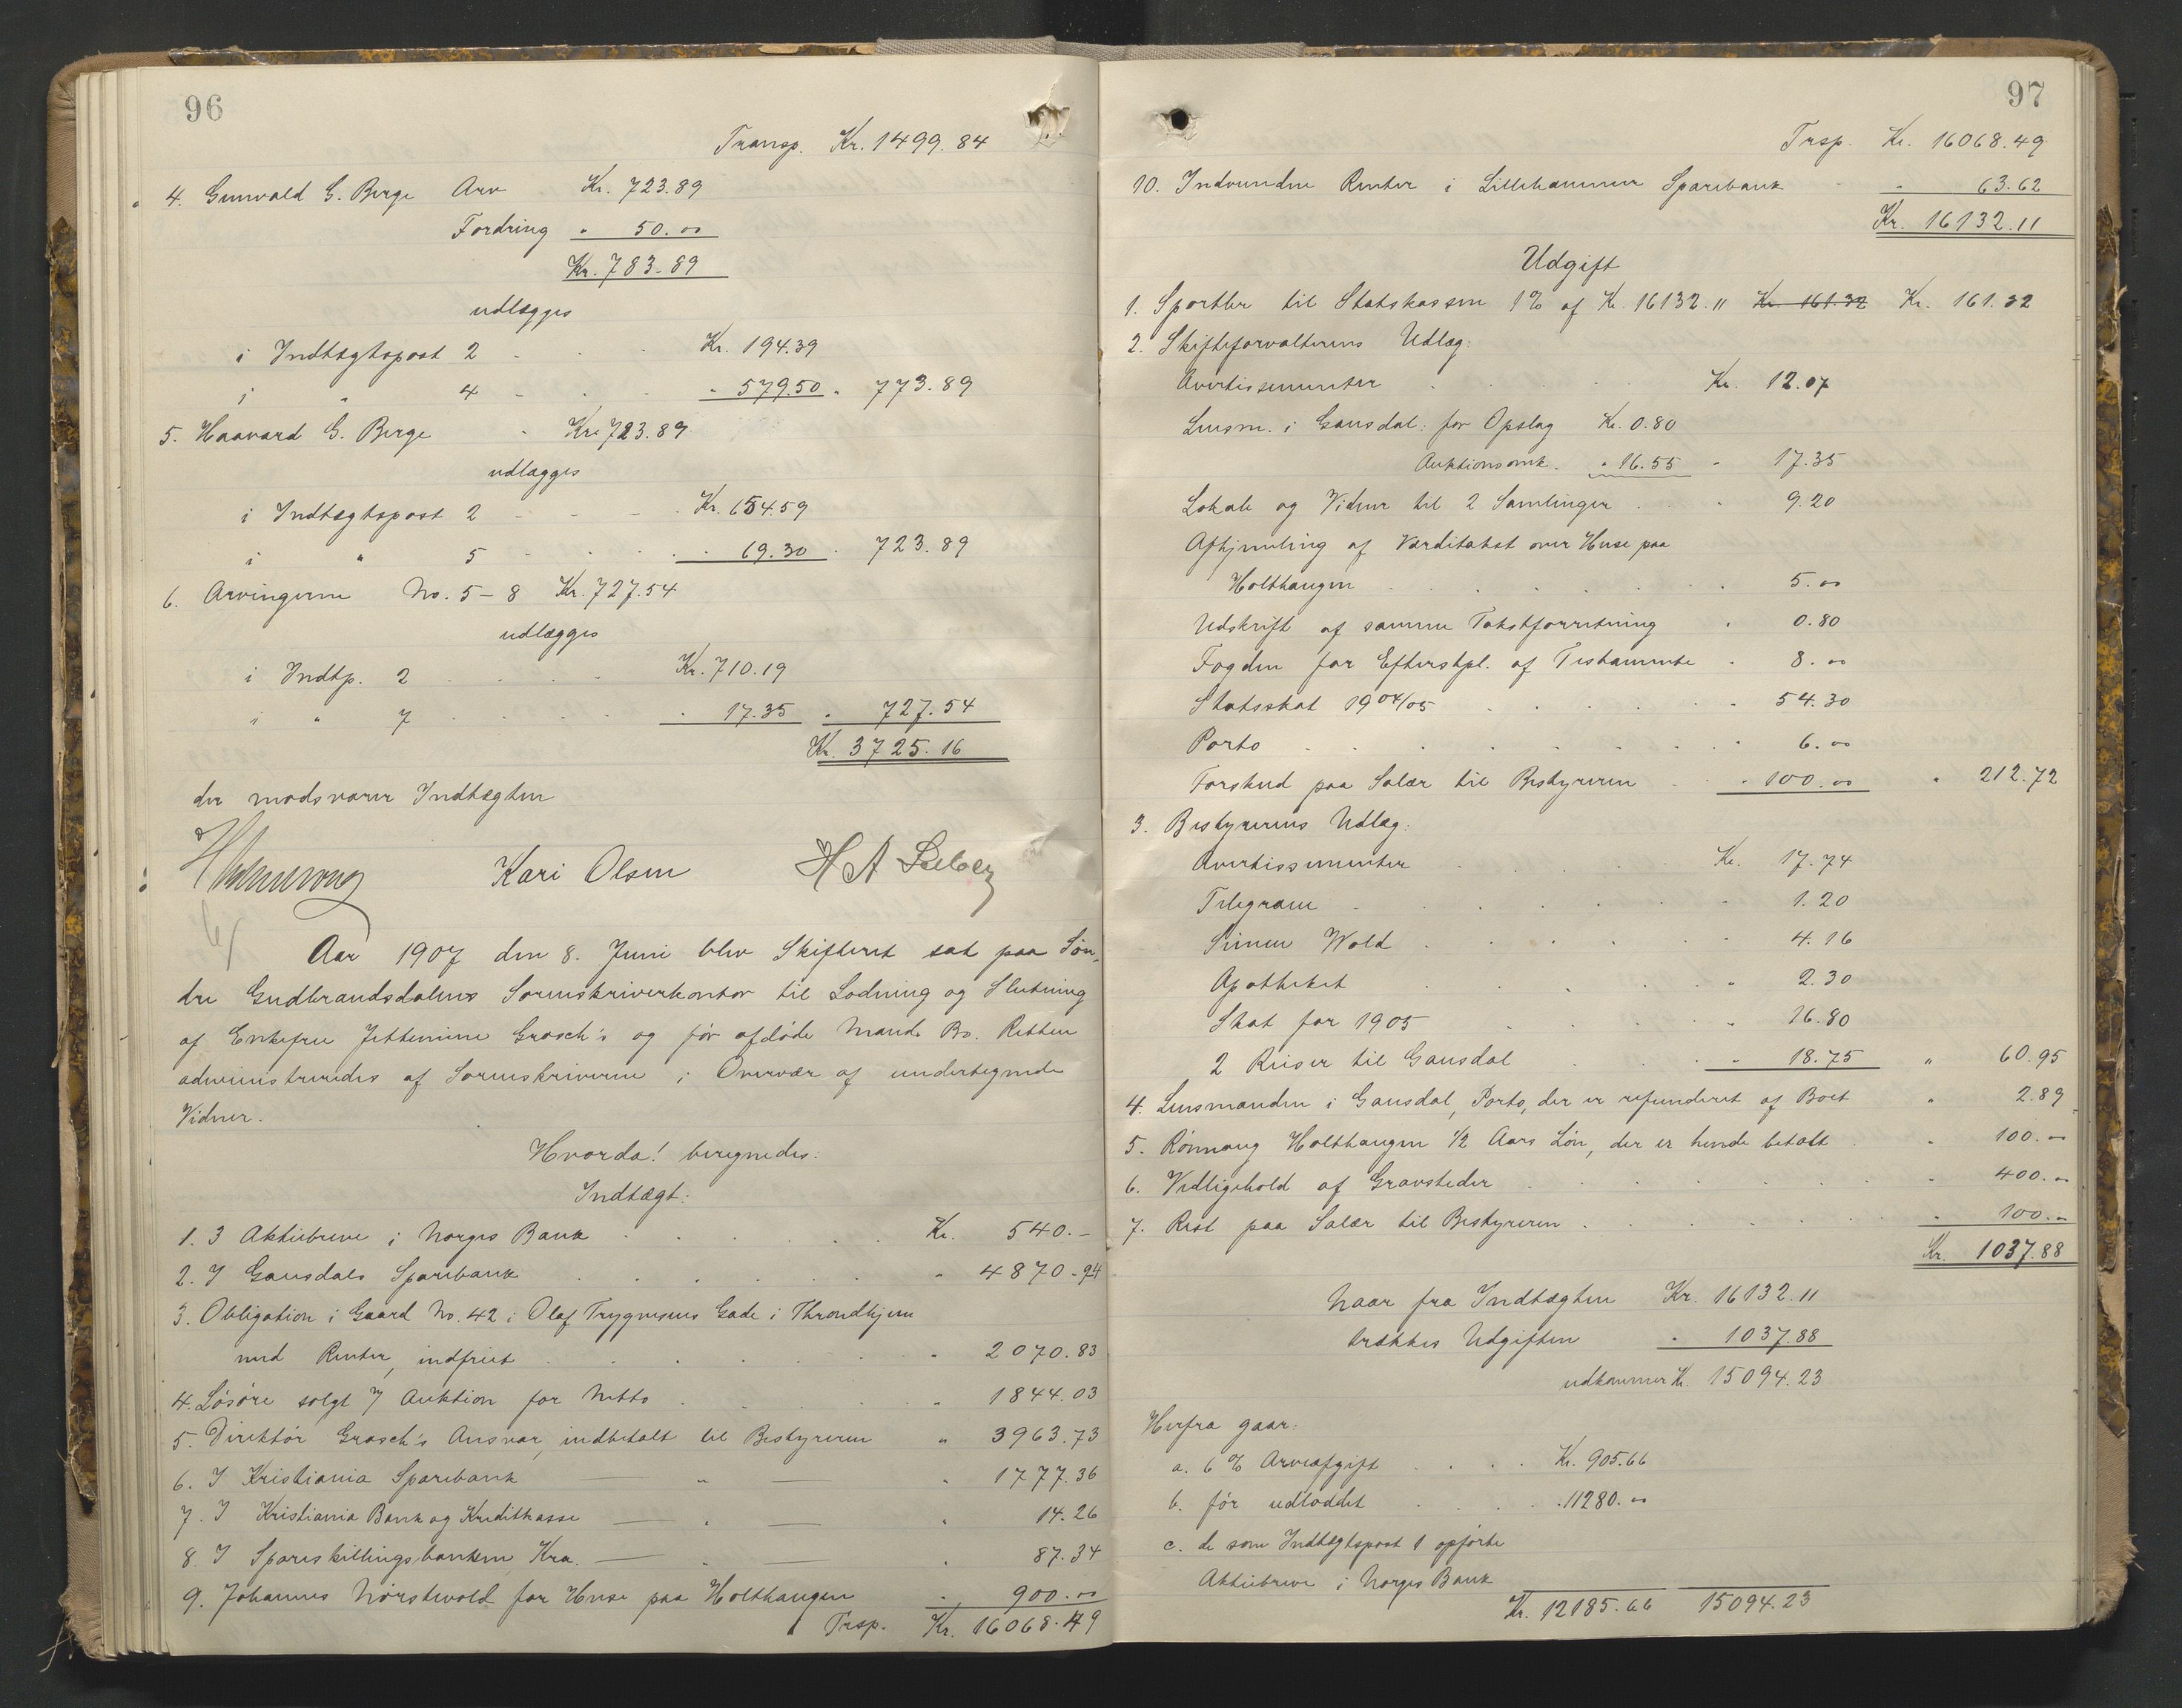 96
Transp. Kr. 1499.84
4. Gunvald G. Berge Arv Kr. 723.89
Fordring " 50.00
Kr. 783.89
udlægges
i Indtægtspost 2 Kr. 194.39
i " 4 " 579.50 " 773.89
5. Haavard G. Berge Kr. 723.89
udlægges
i Indtægtspost 2 Kr. 654.59
i " 5 " 69.30 " 723.89
6. Arvingerne No. 5-8 Kr. 727.54
udlægges
i Indtp. 2 Kr. 710.19
i " 7 " 17.35 " 727.54
Kr. 3725.16
der modsvarer Indtægten
Kari Olsen H A
Aar 1907 den 8. Juni blev Skifteret sat paa Søn-
dre Gudbrandsdalens Sorenskriverkontor til Lodning og Slutning
af Enkefru Jettemine Grosch's og før afdøde Mands Bo. Retten
administreredes af Sorenskriveren i Overvær af undertegnede
Vidner.
Hvorda! beregnedes:
Indtægt:
1. 3 Aktiebreve i Norges Bank Kr. 540.-
2. I Gausdals Sparebank " 4870.94
3. Obligation i Gaard No. 42 i Olaf Trygvesens Gade i Throndhjem
med Renter, indfriet " 2070.83
4. Løsøre solgt v/ Auktion for Netto " 1844.03
5. Direktør Grosch's Ansvar, indbetalt til Bestyreren " 3963.73
6. I Kristiania Sparebank — " — " 1777.36
7. I Kristiania Bank og Kreditkasse — " — " 14.26
8. I Spareskillingsbanken, Kra. — " — " 87.34
9. Johannes Nørstevold for Huse paa Holthaugen " 900.00
Trsp. Kr. 16068.49
97
Trsp. Kr. 16068.49
10. Indvundne Renter i Lillehammer Sparebank " 63.62
Kr. 16132.11
Udgift
1. Sportler til Statskassen 1% af Kr. 16132.11 Kr. 161.32 Kr. 161.32
2. Skifteforvalterens Udlæg:
Avertissementer Kr. 12.07
Lensm. i Gausdal: for Opslag Kr. 0.80
Auktionsomk. " 16.55 " 17.35
Lokale og Vidner til 2 Samlinger " 9.20
Afhjemling af Værditakst over Huse paa
Holthaugen " 5.00
Udskrift af samme Takstforretning " 0.80
Fogden for Efterskpl. af Testamente " 8.00
Statsskat 1904/05 " 54.30
Porto " 6.00
Forskud paa Salær til Bestyreren " 100.00 " 212.72
3. Bestyrerens Udlæg:
Avertissementer Kr. 17.74
Telegram 1.20
Simen Wold " 4.16
Apotheket " 2.30
Skat for 1905 " 16.80
2 Reiser til Gausdal " 18.75 " 60.95
4. Lensmanden i Gausdal, Porto, der er refunderet af Boet " 2.89
5. Rønnaug Holthaugen 1/2 Aars Løn, der er hende betalt " 100.00
6. Vedligehold af Gravsteder " 400.00
7. Rest paa Salær til Bestyreren " 100.00
Kr. 1037.88
Naar fra Indtægten Kr. 16132.11
trækkes Udgiften " 1037.88
udkommer Kr. 15094.23
Herfra gaar:
a. 6% Arveafgift Kr. 905.66
b. før udloddet " 11280.00
c. de som Indtægtspost 1 opførte
Aktiebreve i Norges Bank
Kr. 12185.66 15094.23